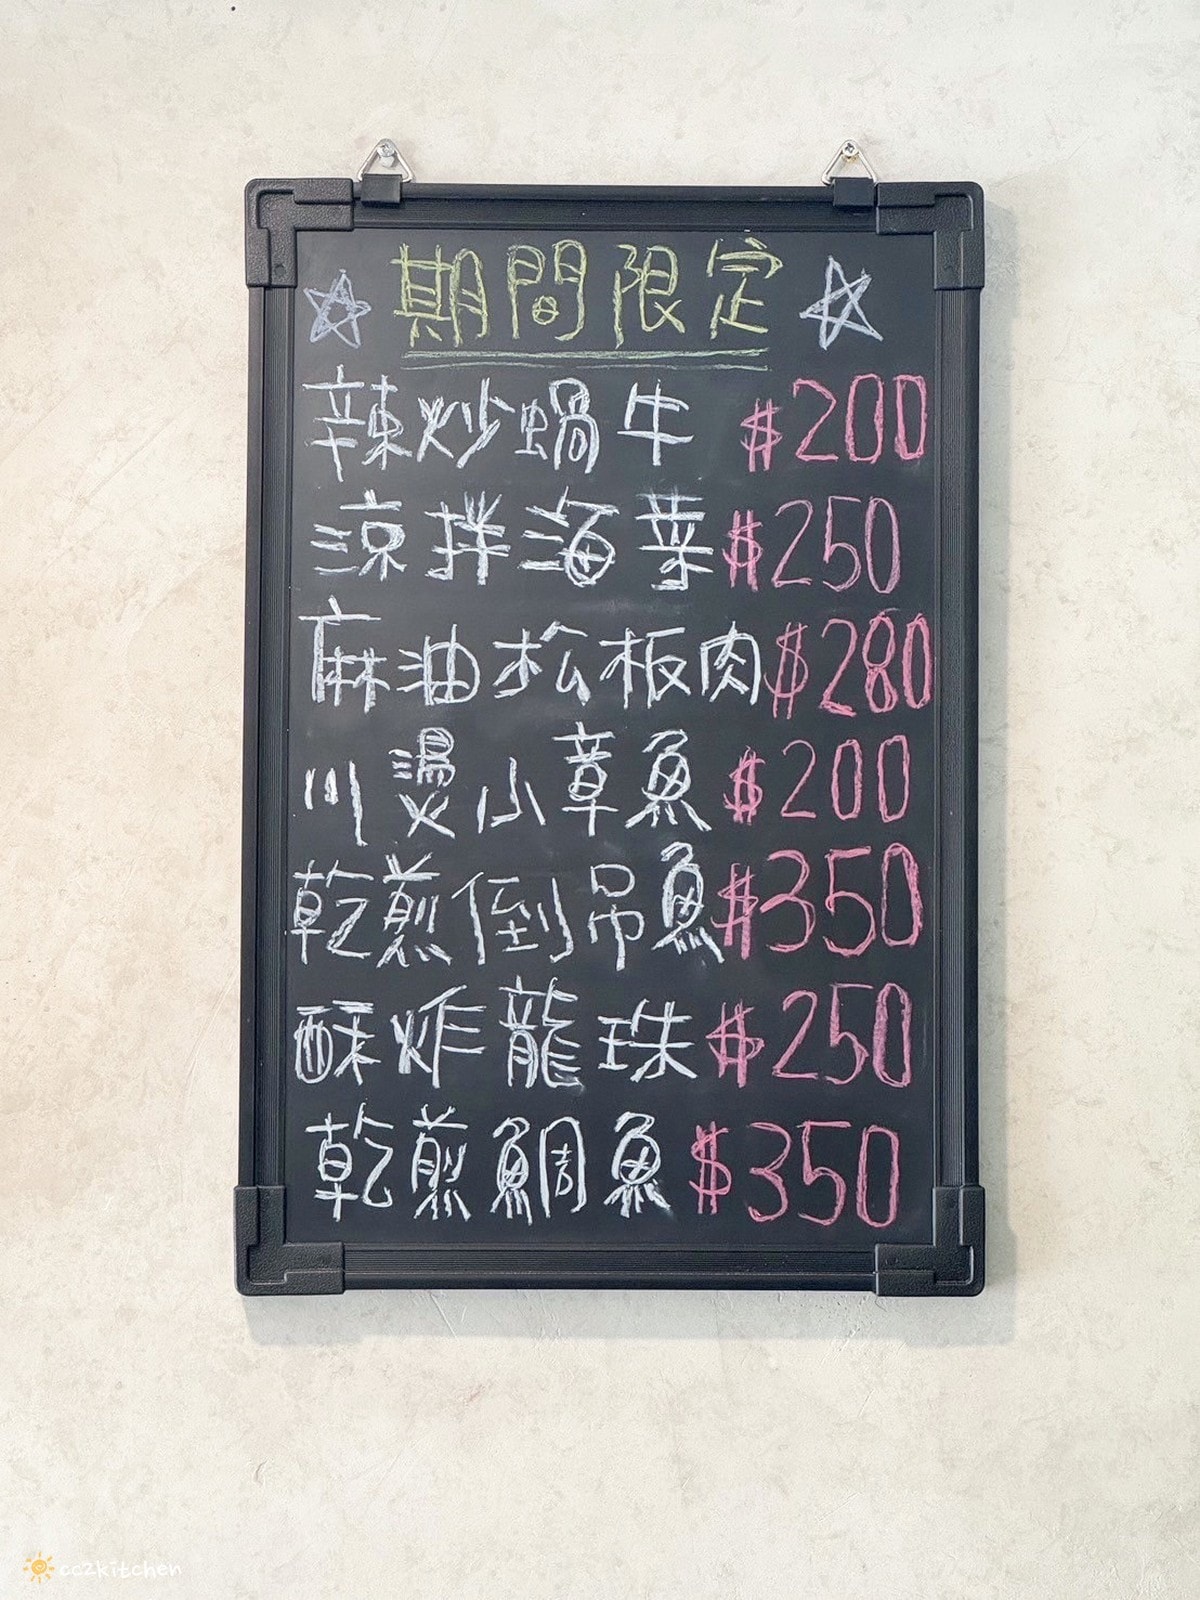 ☆ 期間限定 ☆
辣炒蝸牛 $200
涼拌海菜 $250
麻油松板肉 $280
川燙小章魚 $200
乾煎倒吊魚 $350
酥炸龍珠 $250
乾煎鯛魚 $350
cc2kitchen